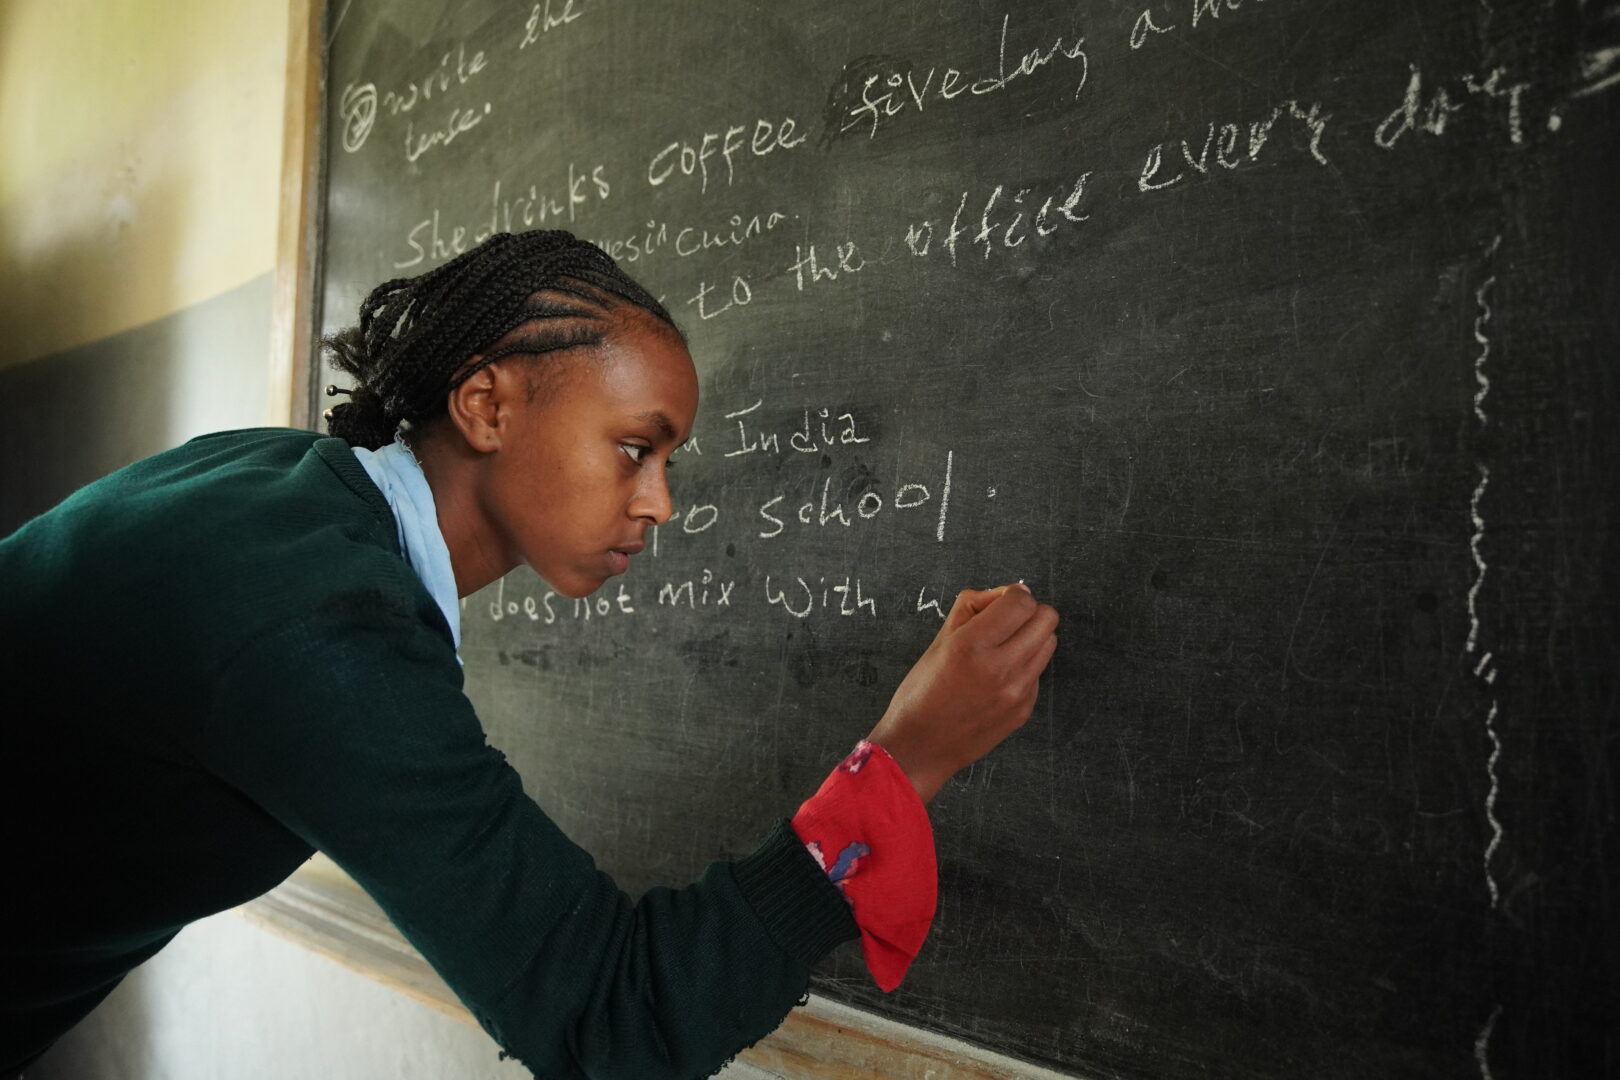 write the
tense.
She drinks coffee five day a
in China.
to the office every day.
India
to school.
does not mix with